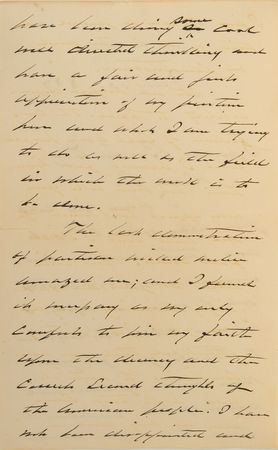 have been doing some cool
well directed thinking and
have a fair and just
appreciation of my position
here and what I am trying
to do as well as the field
in which the work is to
be done.
The last demonstration
of partisan
amazed me; and I found
it necessary as my only
comfort to pin my faith
upon the decency and the
thoughts of
the American people. I have
not been disappointed and